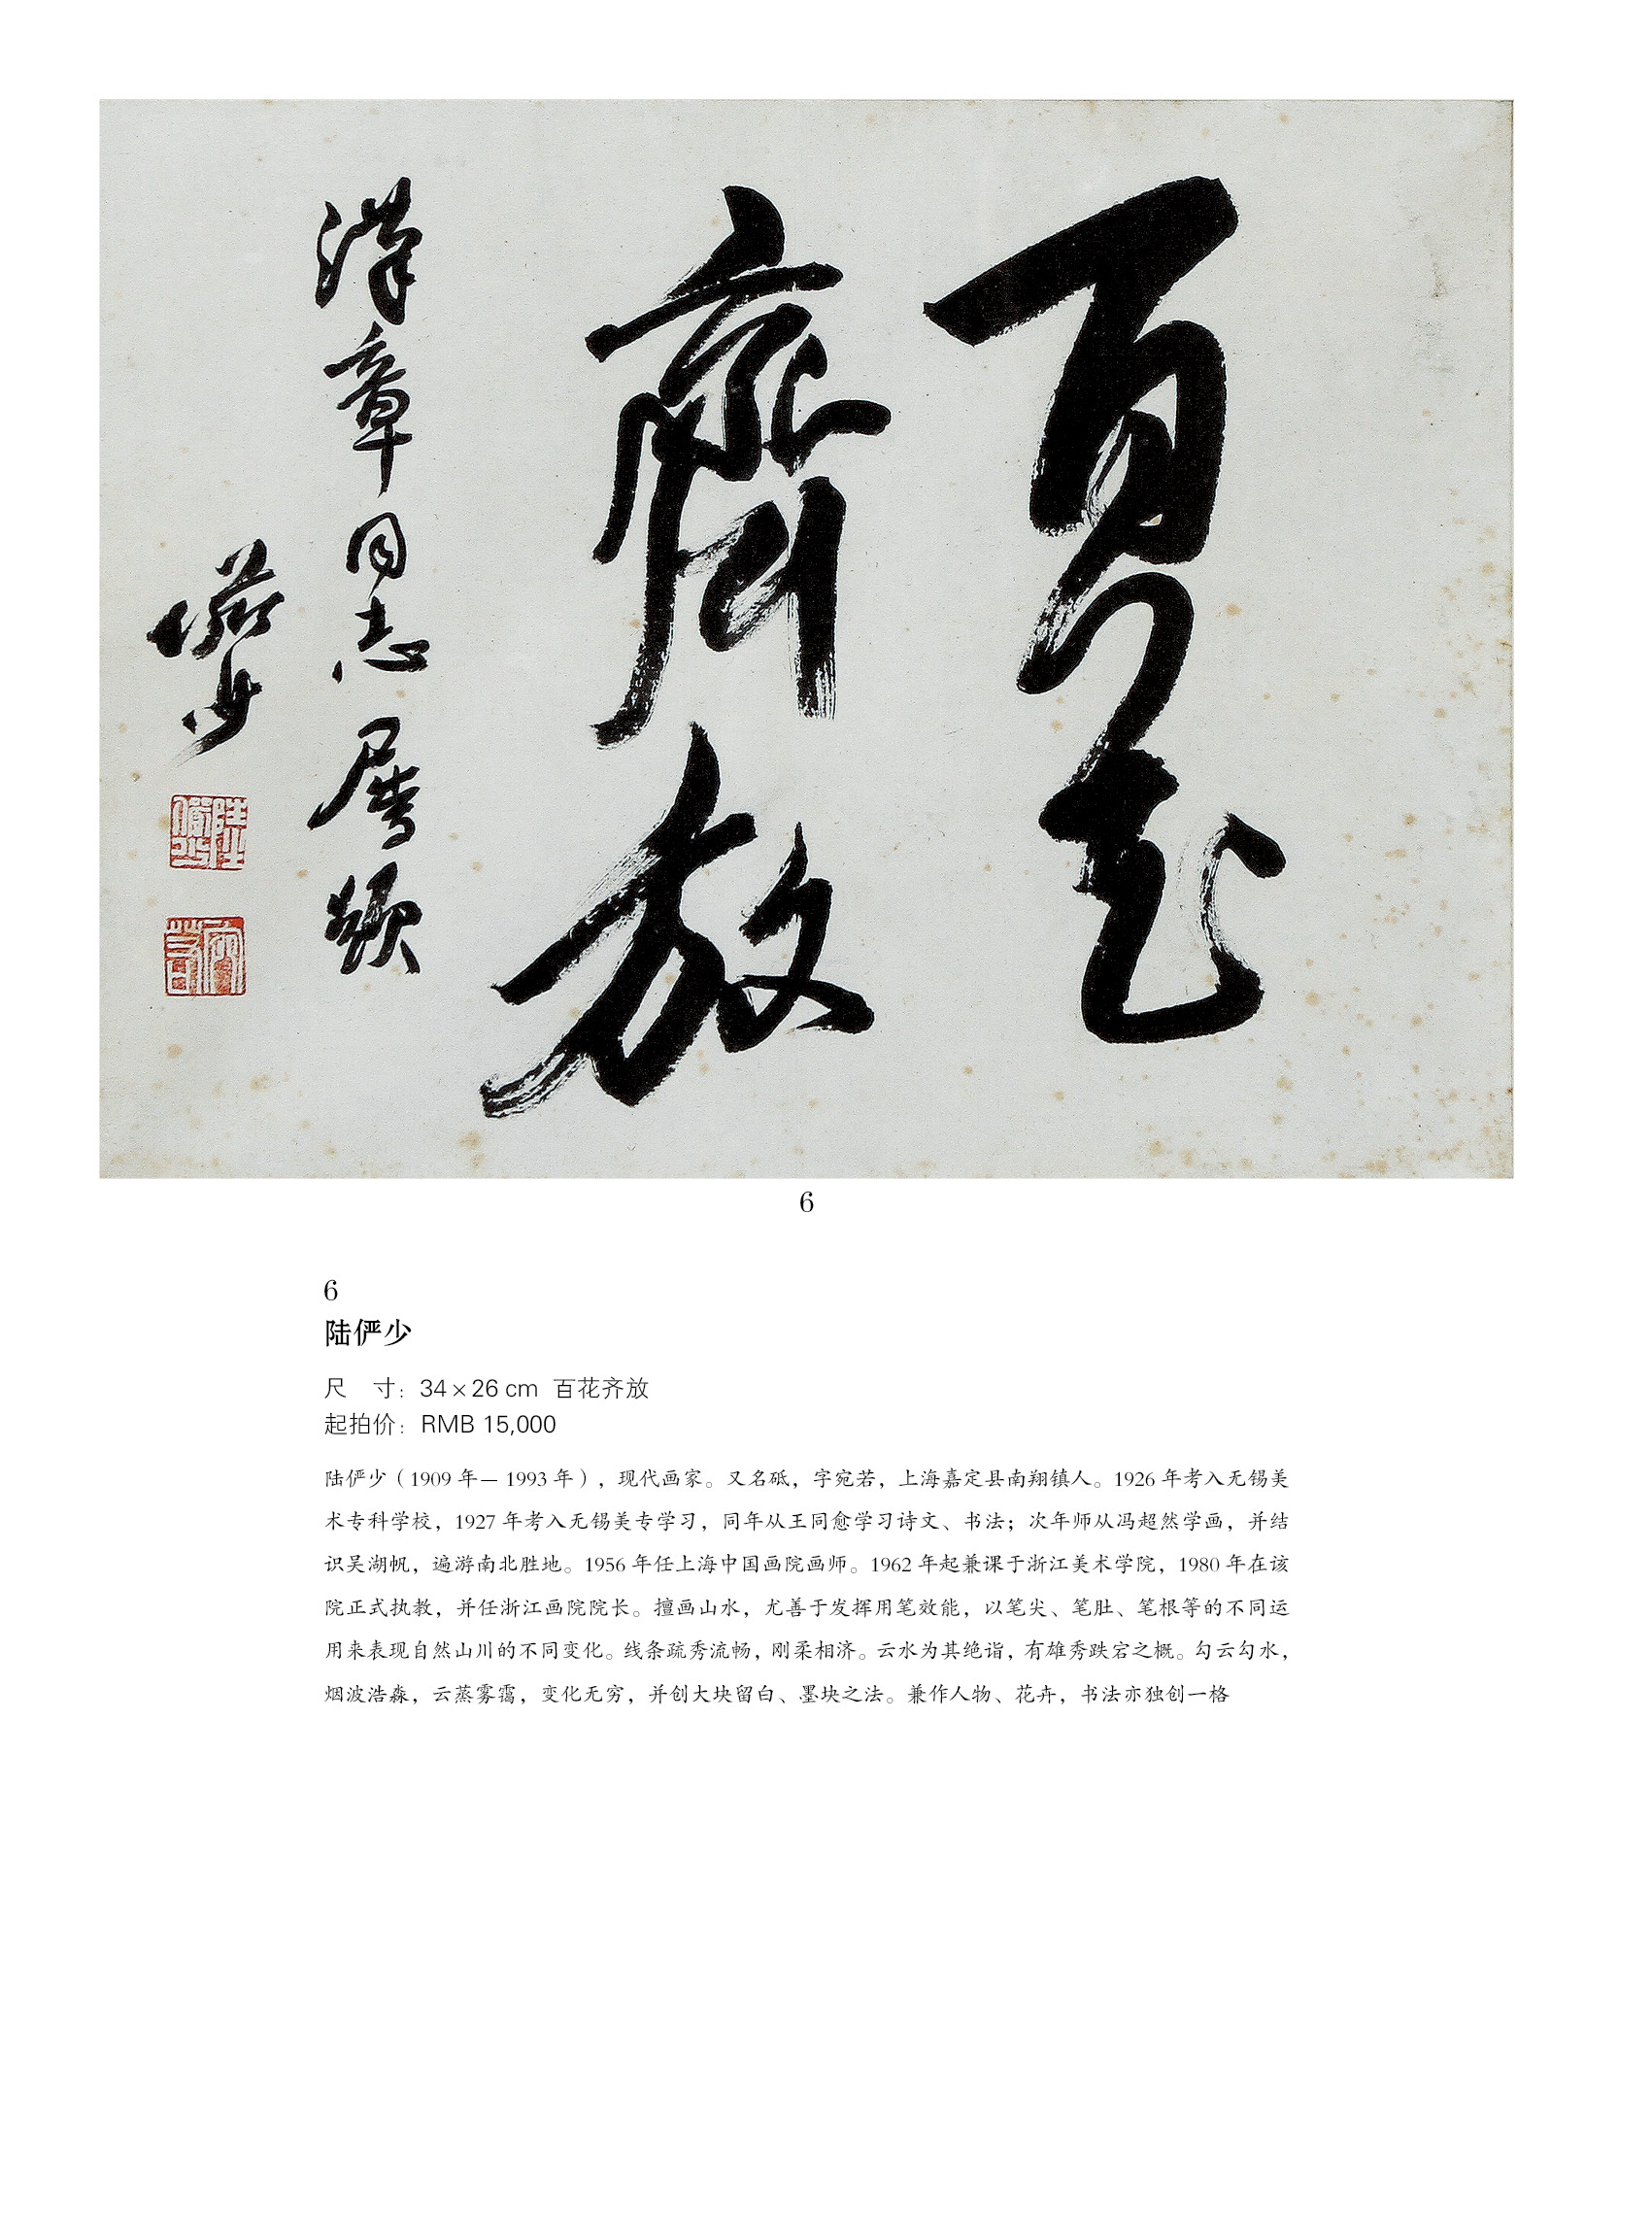 百花
齊放
漢章同志屬題
儼少
陸儼少
宛若
6
6
陆俨少
尺　寸：34×26 cm 百花齐放
起拍价：RMB 15,000
陆俨少（1909 年— 1993 年），现代画家。又名砥，字宛若，上海嘉定县南翔镇人。1926 年考入无锡美
术专科学校，1927 年考入无锡美专学习，同年从王同愈学习诗文、书法；次年师从冯超然学画，并结
识吴湖帆，遍游南北胜地。1956 年任上海中国画院画师。1962 年起兼课于浙江美术学院，1980 年在该
院正式执教，并任浙江画院院长。擅画山水，尤善于发挥用笔效能，以笔尖、笔肚、笔根等的不同运
用来表现自然山川的不同变化。线条疏秀流畅，刚柔相济。云水为其绝诣，有雄秀跌宕之概。勾云勾水，
烟波浩淼，云蒸雾霭，变化无穷，并创大块留白、墨块之法。兼作人物、花卉，书法亦独创一格